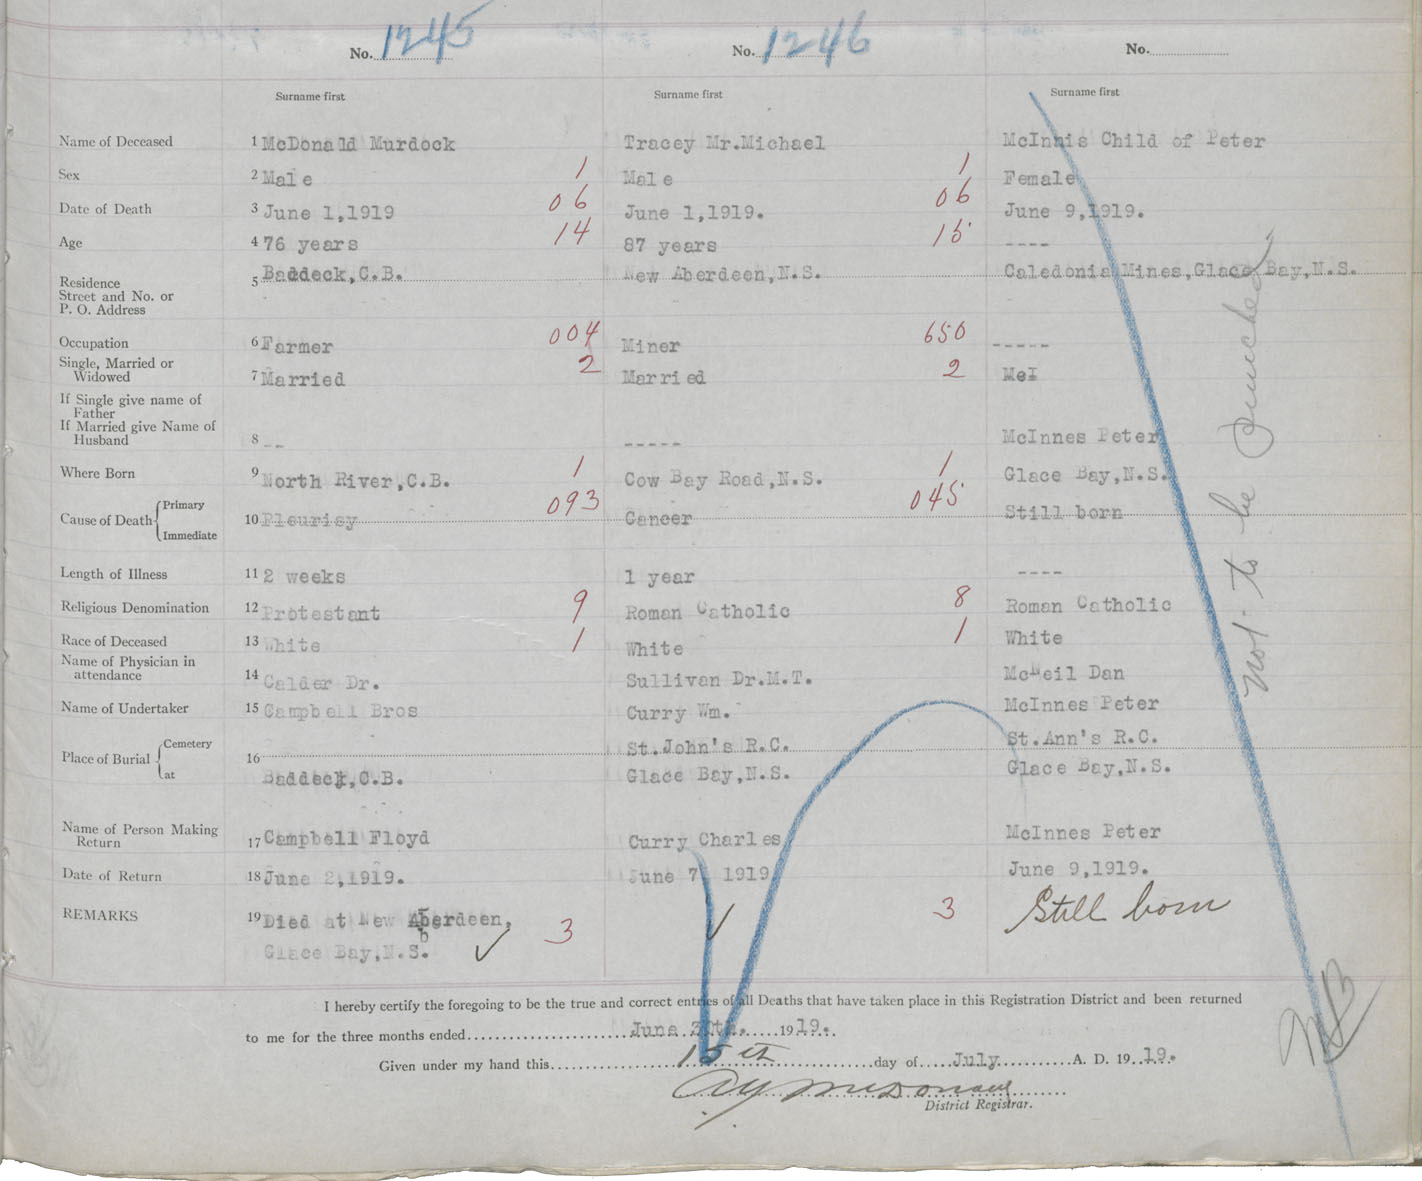 No. 1245 No. 1246 No.
Surname first Surname first Surname first
Name of Deceased 1 McDonald Murdock Tracey Mr.Michael McInnis Child of Peter
Sex 2 Male 1 Male 1 Female
Date of Death 3 June 1,1919 06 June 1,1919. 06 June 9,1919.
Age 4 76 years 14 87 years 15 ----
Residence
Street and No. or
P. O. Address 5 Baddeck,C.B. New Aberdeen,N.S. Caledonia Mines,Glace Bay,N.S.
Occupation 6 Farmer 004 Miner 650 -----
Single, Married or
Widowed 7 Married 2 Married 2 MeI
If Single give name of
Father
If Married give Name of
Husband 8 -- ----- McInnes Peter
Where Born 9 North River,C.B. 1 Cow Bay Road,N.S. 1 Glace Bay,N.S.
Cause of Death { Primary
Immediate 10 Pleurisy 093 Cancer 045 Still born
Length of Illness 11 2 weeks 1 year ----
Religious Denomination 12 Protestant 9 Roman Catholic 8 Roman Catholic
Race of Deceased 13 White 1 White 1 White
Name of Physician in
attendance 14 Calder Dr. Sullivan Dr.M.T. McNeil Dan
Name of Undertaker 15 Campbell Bros Curry Wm. McInnes Peter
Place of Burial { Cemetery 16 St.John's R.C. St.Ann's R.C.
at Baddeck,C.B. Glace Bay,N.S. Glace Bay,N.S.
Name of Person Making
Return 17 Campbell Floyd Curry Charles McInnes Peter
Date of Return 18 June 2,1919. June 7 1919 June 9,1919.
REMARKS 19 Died at New Aberdeen, 3 Still born
b
Glace Bay,N.S. ✓ 3 ✓
Not to be Punched
I hereby certify the foregoing to be the true and correct entries of all Deaths that have taken place in this Registration District and been returned
to me for the three months ended June 30th. 1919.
Given under my hand this 15th day of July A. D. 1919.
McDonald
District Registrar.